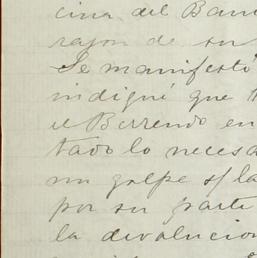 cina del Ban
razon de su
Se manifestó
indiqué que t
el Berrendo en
tado lo necesa
un golpe s/ la
por su parte
la devolucion